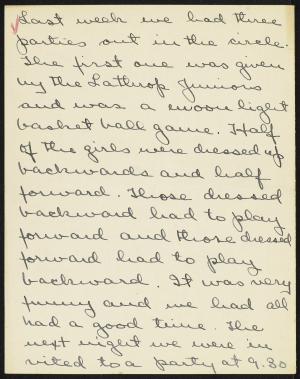 Last week we had three
parties out in the circle.
The first one was given
by the Lathrop Juniors
and was a moon light
basket ball game. Half
of the girls were dressed up
backwards and half
forward. Those dressed
backward had to play
forward and those dressed
forward had to play
backward. It was very
funny and we had all
had a good time. The
next night we were in
vited to a party at 9.30